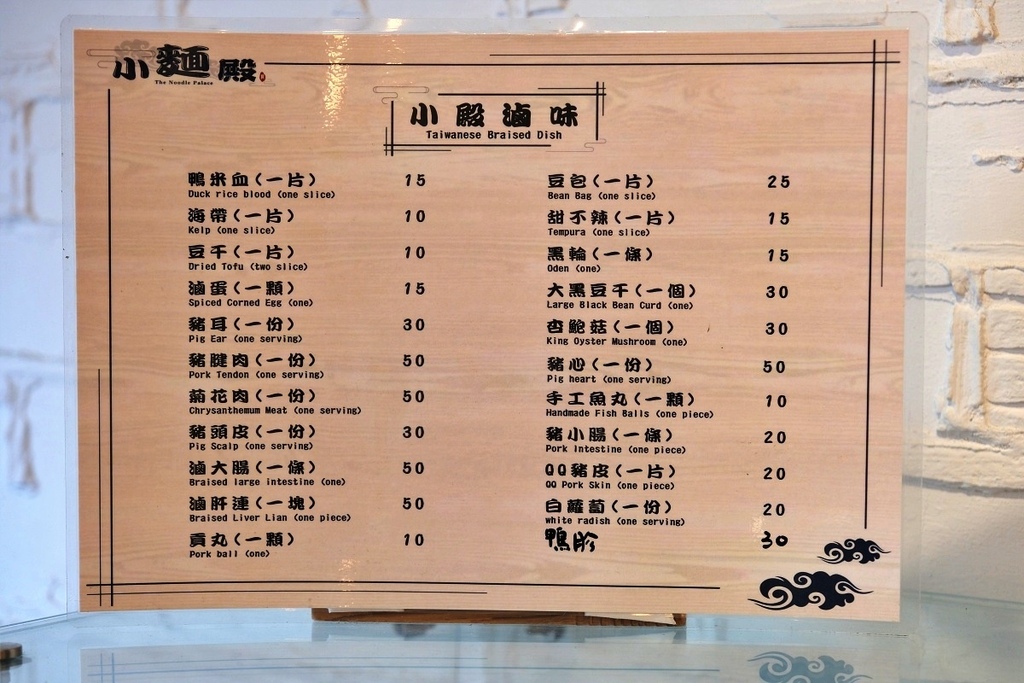 小麵殿
The Noodle Palace
小殿滷味
Taiwanese Braised Dish
鴨米血(一片) 15
Duck rice blood (one slice)
海帶(一片) 10
Kelp (one slice)
豆干(一片) 10
Dried Tofu (two slice)
滷蛋(一顆) 15
Spiced Corned Egg (one)
豬耳(一份) 30
Pig Ear (one serving)
豬腱肉(一份) 50
Pork Tendon (one serving)
菊花肉(一份) 50
Chrysanthemum Meat (one serving)
豬頭皮(一份) 30
Pig Scalp (one serving)
滷大腸(一條) 50
Braised large intestine (one)
滷肝連(一塊) 50
Braised Liver Lian (one piece)
貢丸(一顆) 10
Pork ball (one)
豆包(一片) 25
Bean Bag (one slice)
甜不辣(一片) 15
Tempura (one slice)
黑輪(一條) 15
Oden (one)
大黑豆干(一個) 30
Large Black Bean Curd (one)
杏鮑菇(一個) 30
King Oyster Mushroom (one)
豬心(一份) 50
Pig heart (one serving)
手工魚丸(一顆) 10
Handmade Fish Balls (one piece)
豬小腸(一條) 20
Pork Intestine (one piece)
QQ豬皮(一片) 20
QQ Pork Skin (one piece)
白蘿蔔(一份) 20
white radish (one serving)
鴨胗 30